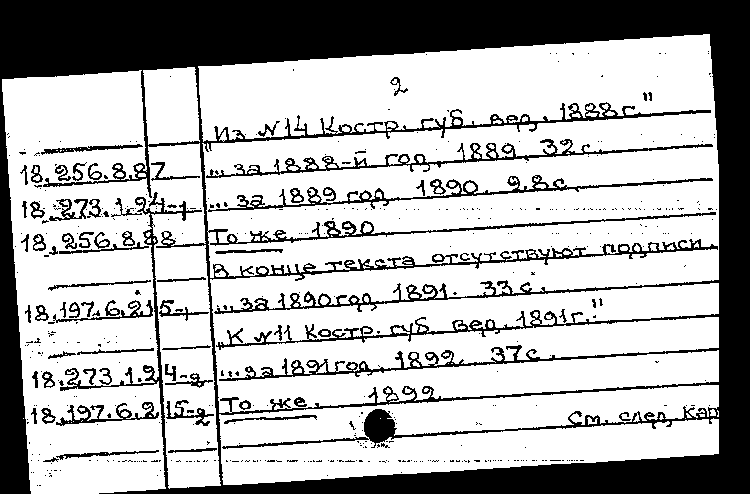 2
"Из №14 Костр. губ. вед. 1888г."
18.256.8.87 ... за 1888-й год. 1889. 32с.
18.273.1.24-1 ... за 1889 год 1890. 28с.
18.256.8.88 То же. 1890
В конце текста отсутствуют подписи.
18.197.6.215-1 ... за 1890 год. 1891. 33с.
"К №11 Костр. губ. вед. 1891г."
18.273.1.24-2 ... за 1891 год. 1892. 37с.
18.197.6.215-2 То же. 1892
См. след. кар